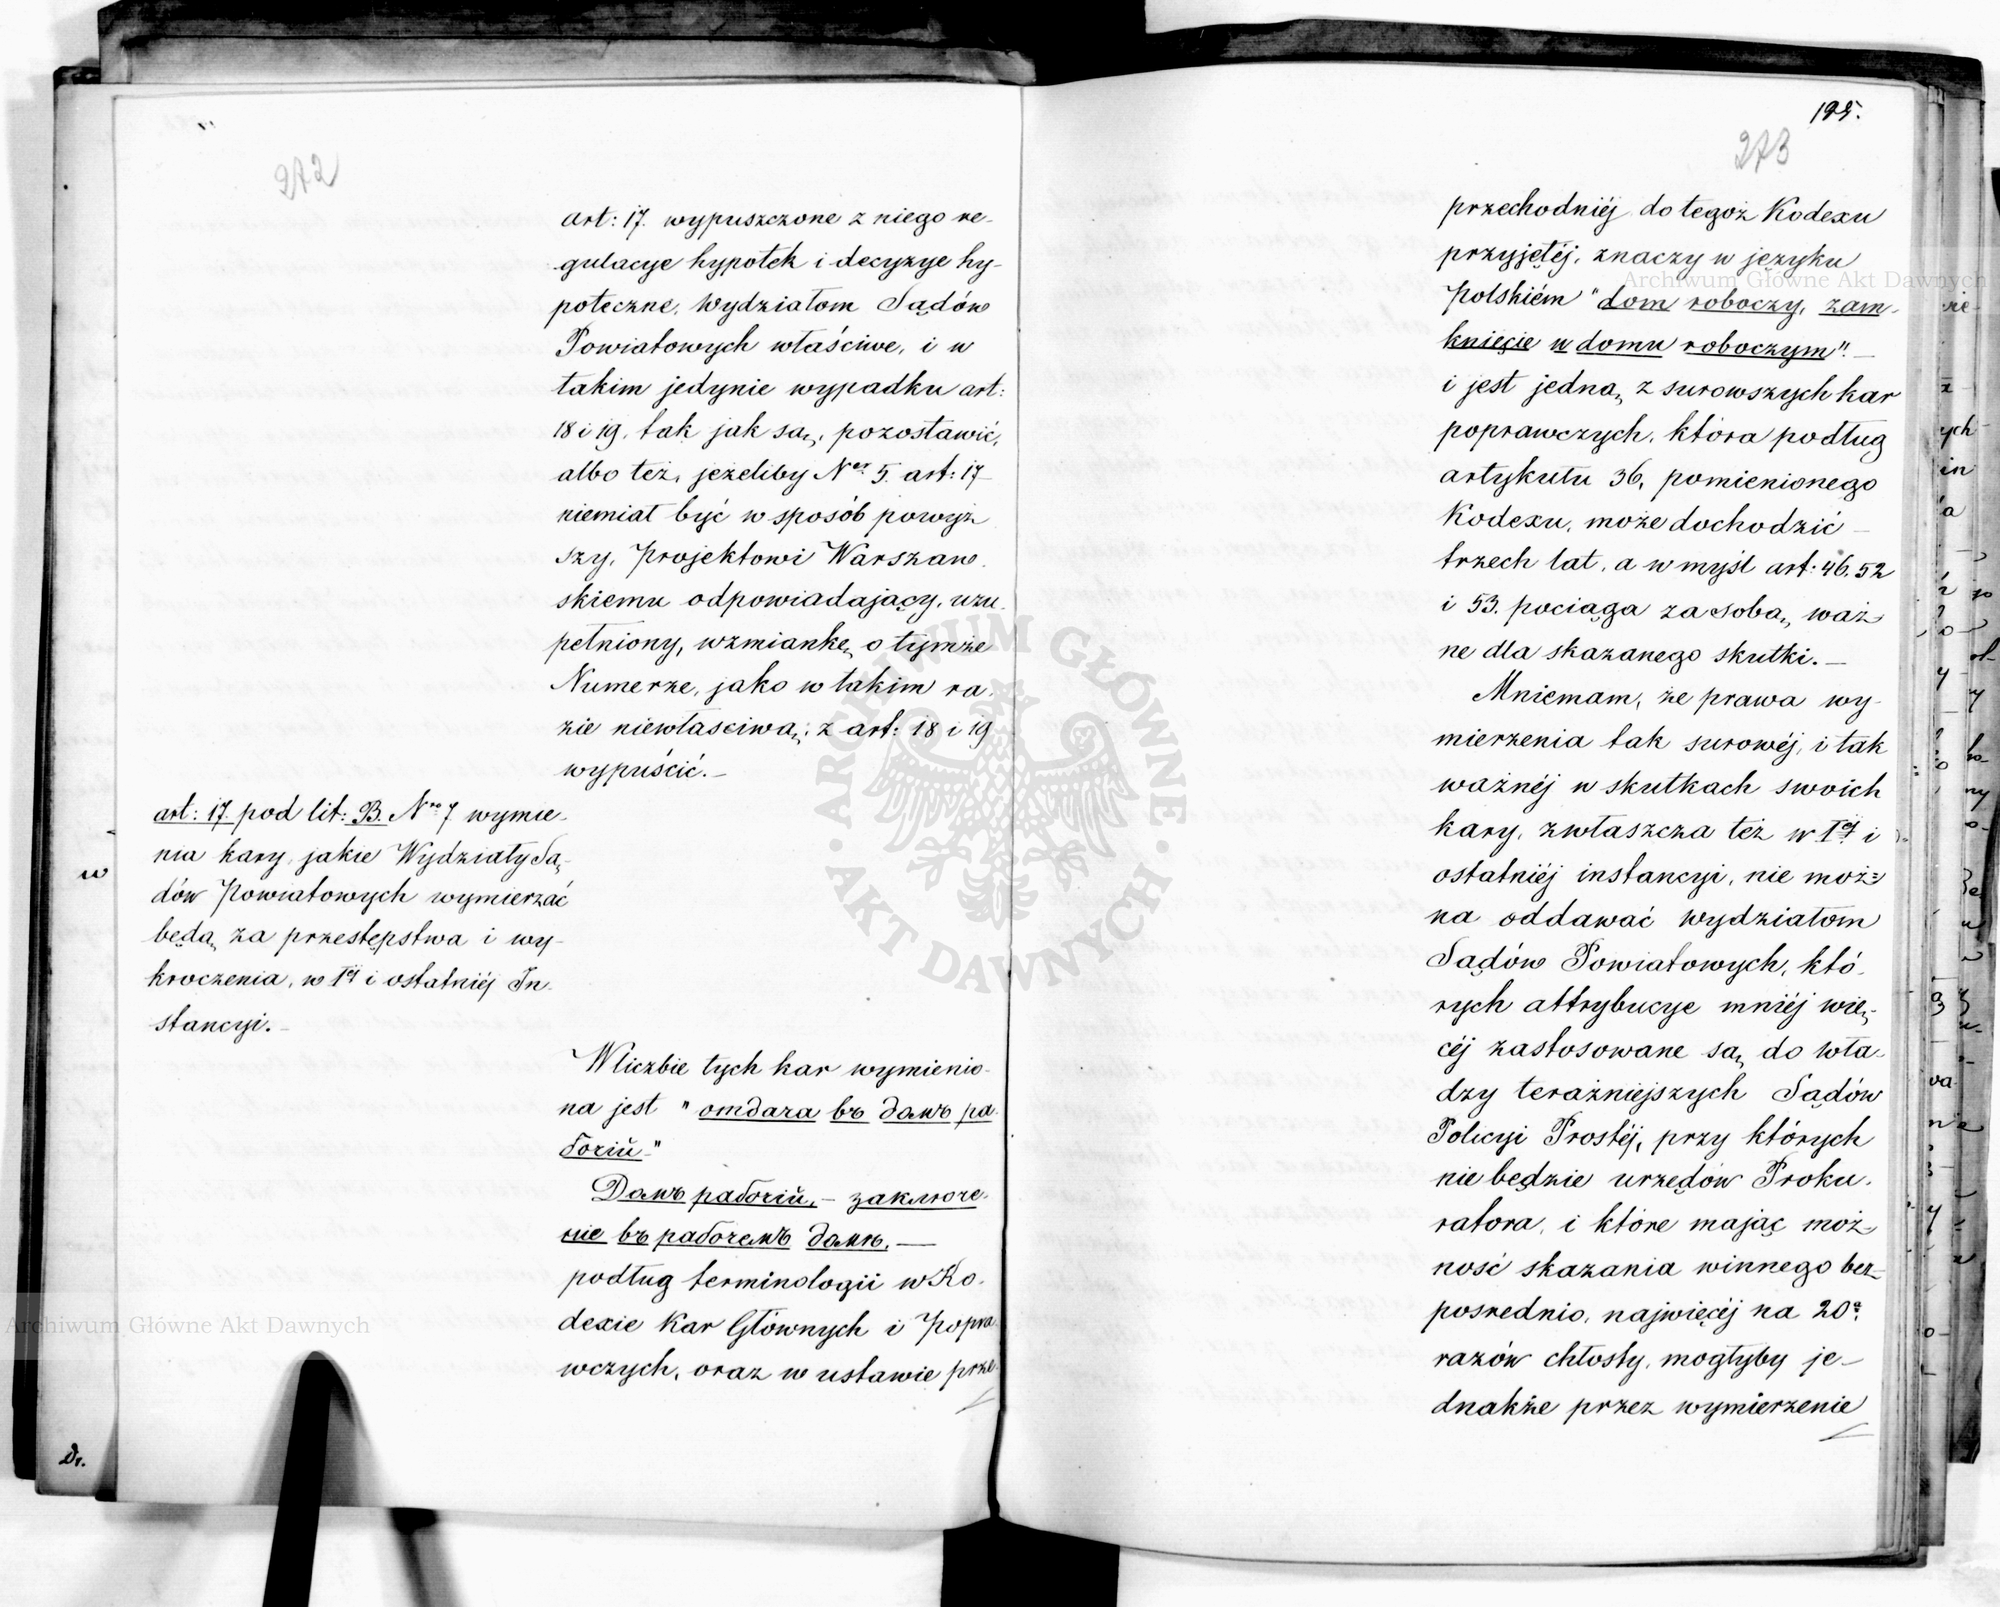 272
art: 17. wypuszczone z niego re-
gulacye hypotek i decyzye hy-
poteczne, Wydziałom Sądów
Powiatowych właściwe, i w
takim jedynie wypadku art:
18 i 19. tak jak są, pozostawić,
albo też, jeżeliby Ner 5. art: 17
niemiał być w sposób powyż
szy, Projektowi Warszaw.
skiemu odpowiadający, uzu.
pełniony, wzmiankę o tymże
Numerze, jako w takim ra.
zie niewłaściwą, z art: 18 i 19
wypuścić.—
art: 17. pod lit: B. Nro 7 wymie.
nia kary, jakie Wydziały Są-
dów Powiatowych wymierzać
będą za przestępstwa i wy-
kroczenia, w Iej i ostatniéj In.
stancyi.—
W liczbie tych kar wymienio-
na jest "отдача въ домъ ра.
бочій."
Домъ рабочій,— заключе.
ніе въ рабочемъ домѣ.—
podług terminologii w Ko.
dexie Kar Głównych i Popra.
wczych, oraz w ustawie prze-
w
Dr.
195.
273
przechodniéj do tegoż Kodexu
przyjętéj, znaczy w języku
Polskiém "dom roboczy, zam-
knięcie w domu roboczym".—
i jest jedną z surowszych kar
poprawczych, która podług
artykułu 36, pomienionego
Kodexu, może dochodzić —
trzech lat, a w myśl art: 46. 52
i 53. pociąga za sobą waż
ne dla skazanego skutki.—
Mniemam, że prawa wy-
mierzenia tak surowéj, i tak
ważnéj w skutkach swoich
kary, zwłaszcza też w Iej i
ostatniéj instancyi, nie moż=
na oddawać wydziałom
Sądów Powiatowych, któ.
rych attrybucye mniéj wię-
céj zastosowane są do wła-
dzy teraźniejszych Sądów
Policyi Prostéj, przy których
nie będzie urzędów Proku.
ratora, i które mając moż=
ność skazania winnego bez=
pośrednio, najwięcéj na 20a.
razów chłosty, mogłyby je—
dnakże przez wymierzenie
Archiwum Główne Akt Dawnych
Archiwum Główne Akt Dawnych
ARCHIWUM GŁÓWNE · AKT DAWNYCH ·